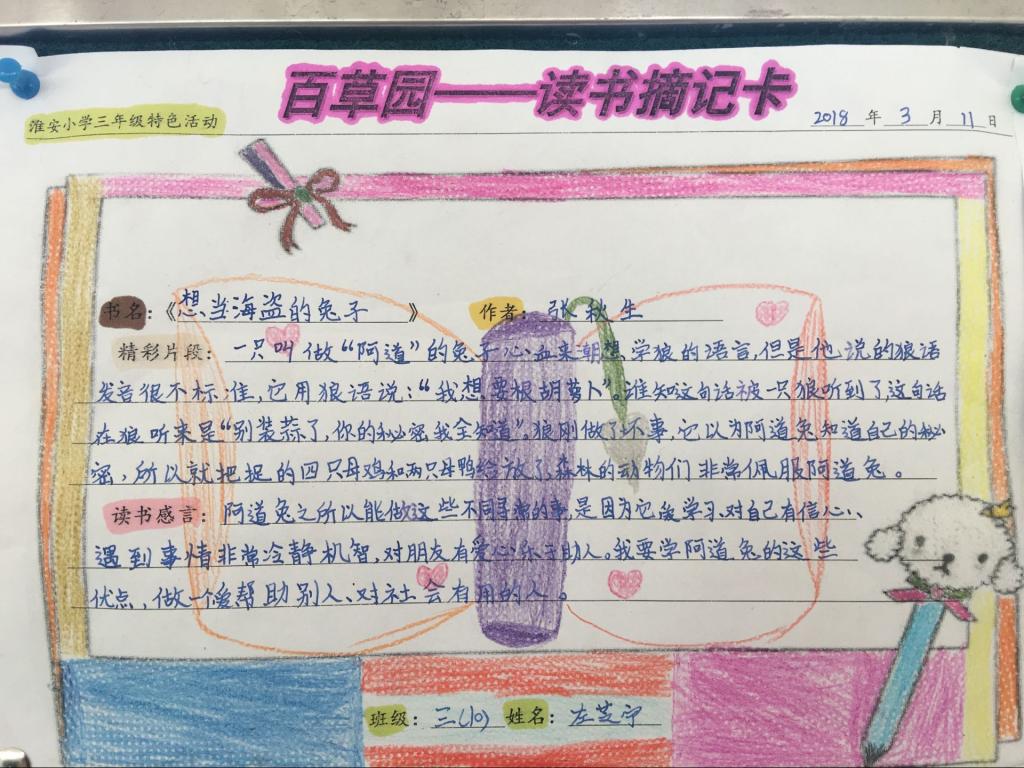 百草园——读书摘记卡
淮安小学三年级特色活动
2018 年 3 月 11 日
书名：《想当海盗的兔子》 作者：张秋生
精彩片段：一只叫做“阿道”的兔子心血来朝想学狼的语言,但是他说的狼语
发音很不标准,它用狼语说：“我想要根胡萝卜”。谁知这句话被一只狼听到了,这句话
在狼听来是“别装蒜了,你的秘密我全知道”。狼刚做了坏事,它以为阿道兔知道自己的秘
密,所以就把捉的四只母鸡和两只母鸭给放了,森林的动物们非常佩服阿道兔。
读书感言：阿道兔之所以能做这些不同寻常的事,是因为它爱学习、对自己有信心、
遇到事情非常冷静机智,对朋友有爱心、乐于助人。我要学阿道兔的这些
优点,做一个爱帮助别人、对社会有用的人。
班级：三(10) 姓名：左芝宁